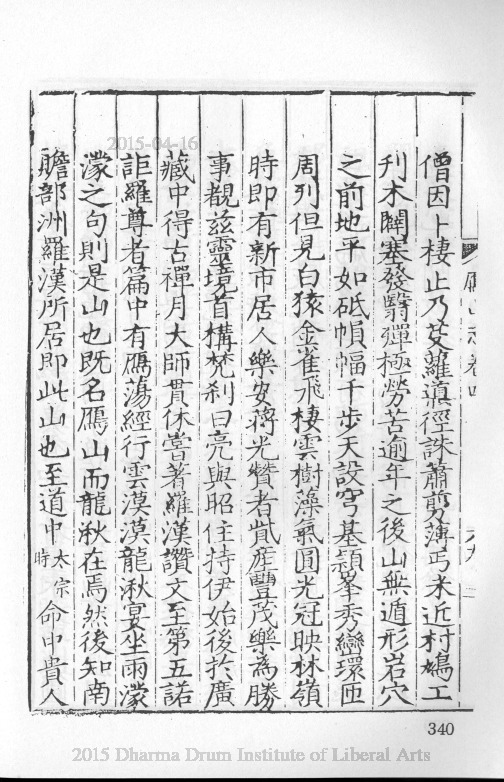 2015-04-16
僧因卜棲止乃芟蘿滇徑誅蕭剪薄丐米近村鳩工
刋木闢塞發翳殫極勞苦逾年之後山無遁形岩穴
之前地平如砥幀幅千步天設穹基頴峯秀巒環匝
周列但見白猿金雀飛棲雲樹藻氣圓光冠映林嶺
時即有新市居人樂安蔣光贊者貲產豐茂樂為勝
事觀玆靈境首構梵刹曰亮與昭住持伊始後於廣
藏中得古禪月大師貫休嘗著羅漢讚文至第五諾
詎羅尊者篇中有鴈蕩經行雲漠漠龍湫宴坐雨濛
濛之句則是山也既名鴈山而龍湫在焉然後知南
贍部洲羅漢所居即此山也至道中太宗時命中貴人
340
2015 Dharma Drum Institute of Liberal Arts